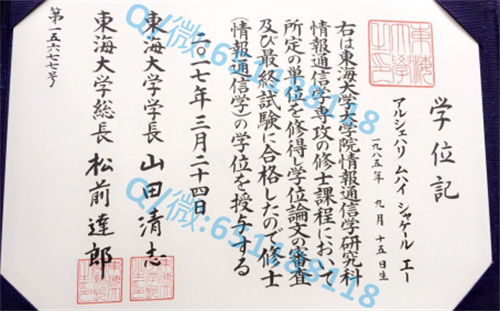 学位記
アルシェハリ ムハイ シャケール エー
一九八五年 九月 十五日生
右は東海大学大学院情報通信学研究科
情報通信学専攻の修士課程において
所定の単位を修得し学位論文の審査
及び最終試験に合格したので修士
(情報通信学)の学位を授与する
二〇一七年三月二十四日
東海大学学長 山田清志
東海大学総長 松前達郎
第一五六七七号
東海
大学
之印